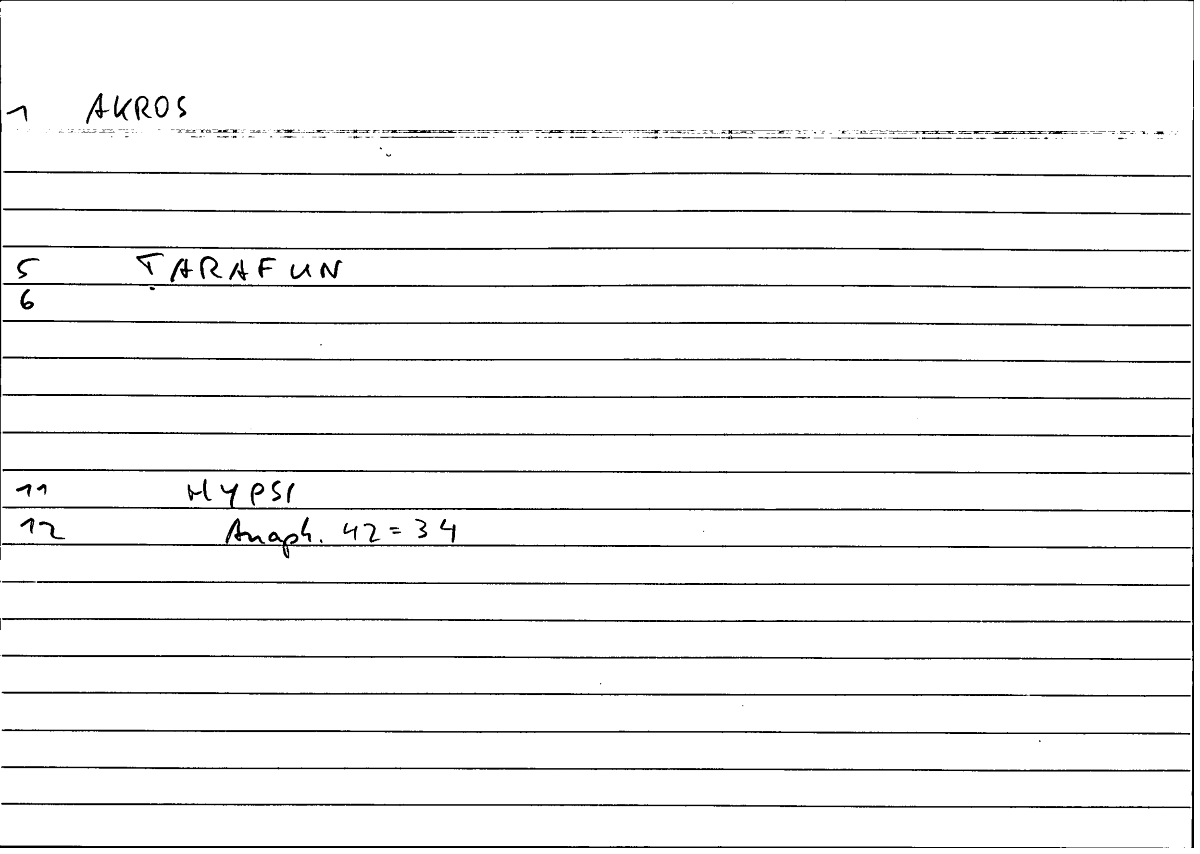 1 AKROS
5 TARAFUN
6
11 HYPSI
12 Anaph. 42 = 34